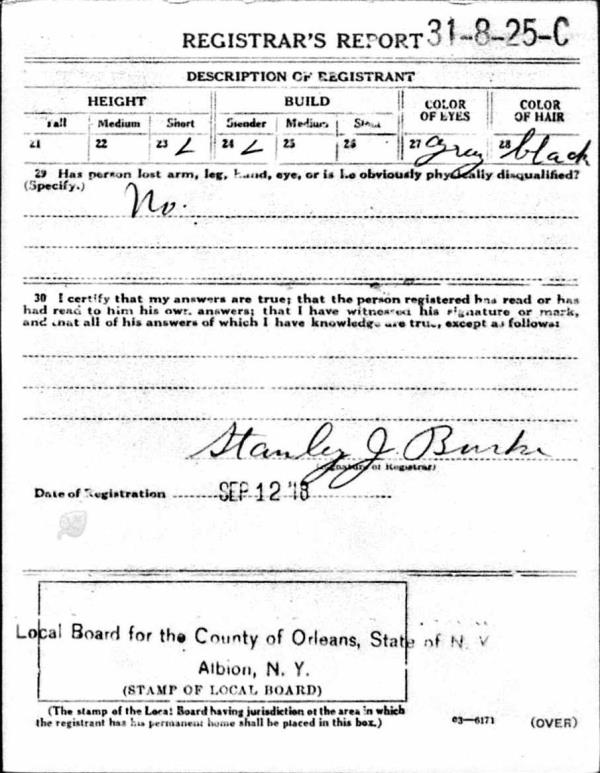 REGISTRAR'S REPORT 31-8-25-C
DESCRIPTION OF REGISTRANT
HEIGHT BUILD COLOR OF EYES COLOR OF HAIR
Tall Medium Short Slender Medium Stout
21 22 23 ✓ 24 ✓ 25 26 27 Grey 28 black
29 Has person lost arm, leg, hand, eye, or is he obviously physically disqualified?
(Specify.)
No.
30 I certify that my answers are true; that the person registered has read or has
had read to him his own answers; that I have witnessed his signature or mark,
and that all of his answers of which I have knowledge are true, except as follows:
Stanley J Burke
(Signature of Registrar)
Date of Registration SEP 12 '18
Local Board for the County of Orleans, State of N. Y
Albion, N. Y.
(STAMP OF LOCAL BOARD)
(The stamp of the Local Board having jurisdiction of the area in which
the registrant has his permanent home shall be placed in this box.)
03—6171 (OVER)